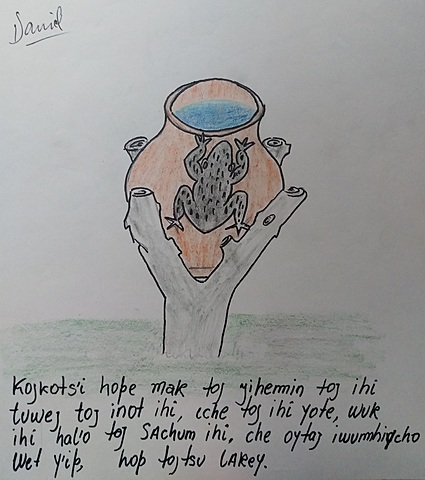 Daniel
Kojkots'i hope mak toj yihemin toj ihi
tuwej toj inot ihi, cche toj ihi yote, wuk
ihi hal'o toj SAchum ihi, che oytaj iwumhiycho
Wet y'ip, hop tojtsu LAKey.